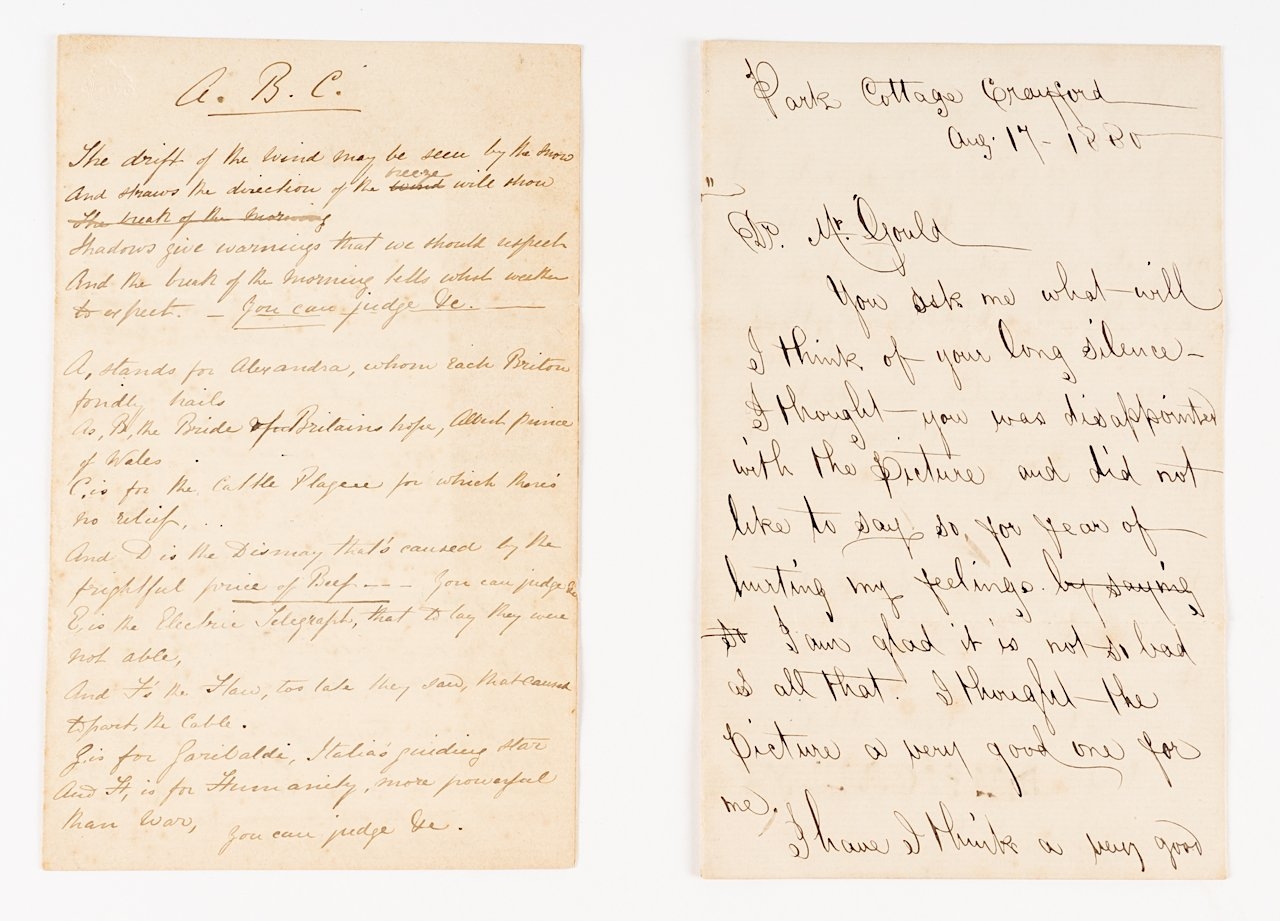 A. B. C.
The drift of the wind may be seen by the snow
And straws the direction of the breeze wind will show
The break of the Morning
Shadows give warnings that we should respect
And the break of the Morning tells what weather
to expect. – You can judge &c.
A, stands for Alexandra, whom Each Briton
fondly hails
As, B, the Bride of Britains hope, Albert Prince
of Wales
C. is for the Cattle Plague for which there's
no relief, ..
And D is the Dismay that's caused by the
frightful price of Beef – – You can judge &c
E, is the Electric Telegraph, that to lay they were
not able,
And F's the Flaw, too late they saw, that caused
to part, the Cable.
G. is for Garibaldi, Italia's guiding star
And H, is for Humanity, more powerful
than War,
You can judge &c.
Park Cottage Crayford
Aug. 17 – 1880
"
Dr. Mr. Gould
You ask me what will
I think of your long silence –
I thought you was disappointed
with the Picture and did not
like to say so, for fear of
hurting my feelings. by saying
so I am glad it is not so bad
as all that. I thought the
Picture a very good one for
me.
I have I think a very good